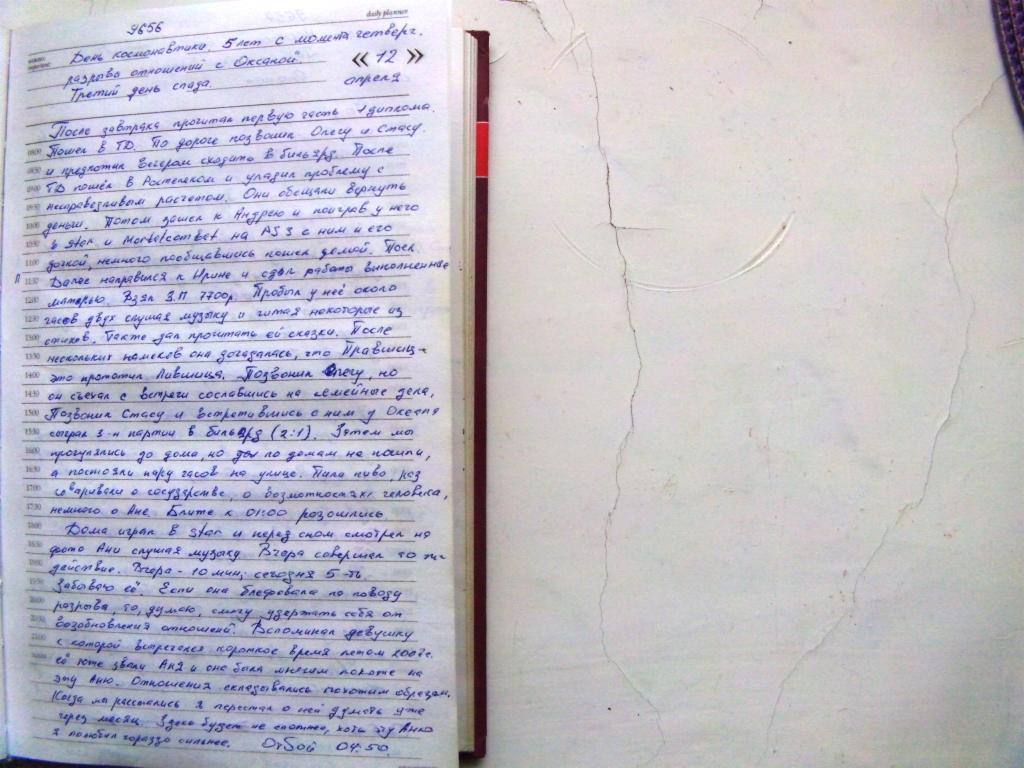 9656
daily planner
День космонавтики. 5 лет с момента четверг.
разрыва отношений с Оксаной. « 12 »
Третий день спада. апреля
После завтрака прочитал первую часть 1 диплома.
08:00 Пошел в ТД. По дороге позвонил Олегу и Стасу.
08:30 и предложил вечером сходить в бильярд. После
09:00 ТД пошёл в Ростелеком и уладил проблему с
09:30 несправедливым расчетом. Они обещали вернуть
10:00 деньги. Потом зашел к Андрею и поиграв у него
10:30 в star и Mortalcombat на PS3 с ним и его
11:00 дочкой, немного пообщавшись пошел домой. Посл.
11:30 Далее направился к Ирине и сдал работы выполненные
12:00 матерью. Взял З.П 7700р. Пробыл у неё около
12:30 часов двух слушая музыку и читая некоторые из
13:00 стихов. Также дал прочитать ей сказки. После
13:30 нескольких намеков она догадалась, что Правшиц-
14:00 это прототип Лившица. Позвонил Олегу, но
14:30 он съехал с встречи сославшись на семейные дела,
15:00 Позвонил Стасу и встретившись с ним у Оксаны
15:30 сыграл 3-и партии в бильярд (2:1). Затем мы
16:00 прогулялись до дома, но по домам не пошли,
16:30 а постояли пару часов на улице. Пили пиво, раз
17:00 говаривали о государстве, о возможностях человека,
17:30 немного о Ане. Ближе к 01:00 разошлись
18:00 Дома играл в star и перед сном смотрел на
18:30 фото Ани слушая музыку. Вчера совершал то же
действие. Вчера - 10 мин; сегодня 5-ть.
19:30 Забываю её. Если она блефовала по поводу
20:00 разрыва, то, думаю, смогу удержать себя от
20:30 возобновления отношений. Вспоминал девушку
21:00 с которой встречался короткое время летом 2007г.
её тоже звали Аня и она была многим похожа на
эту Аню. Отношения складывались похожим образом.
Когда мы расстались я перестал о ней думать уже
через месяц. Здесь будет не сложнее, хоть эту Аню
я полюбил гораздо сильнее. Отбой 04:50.